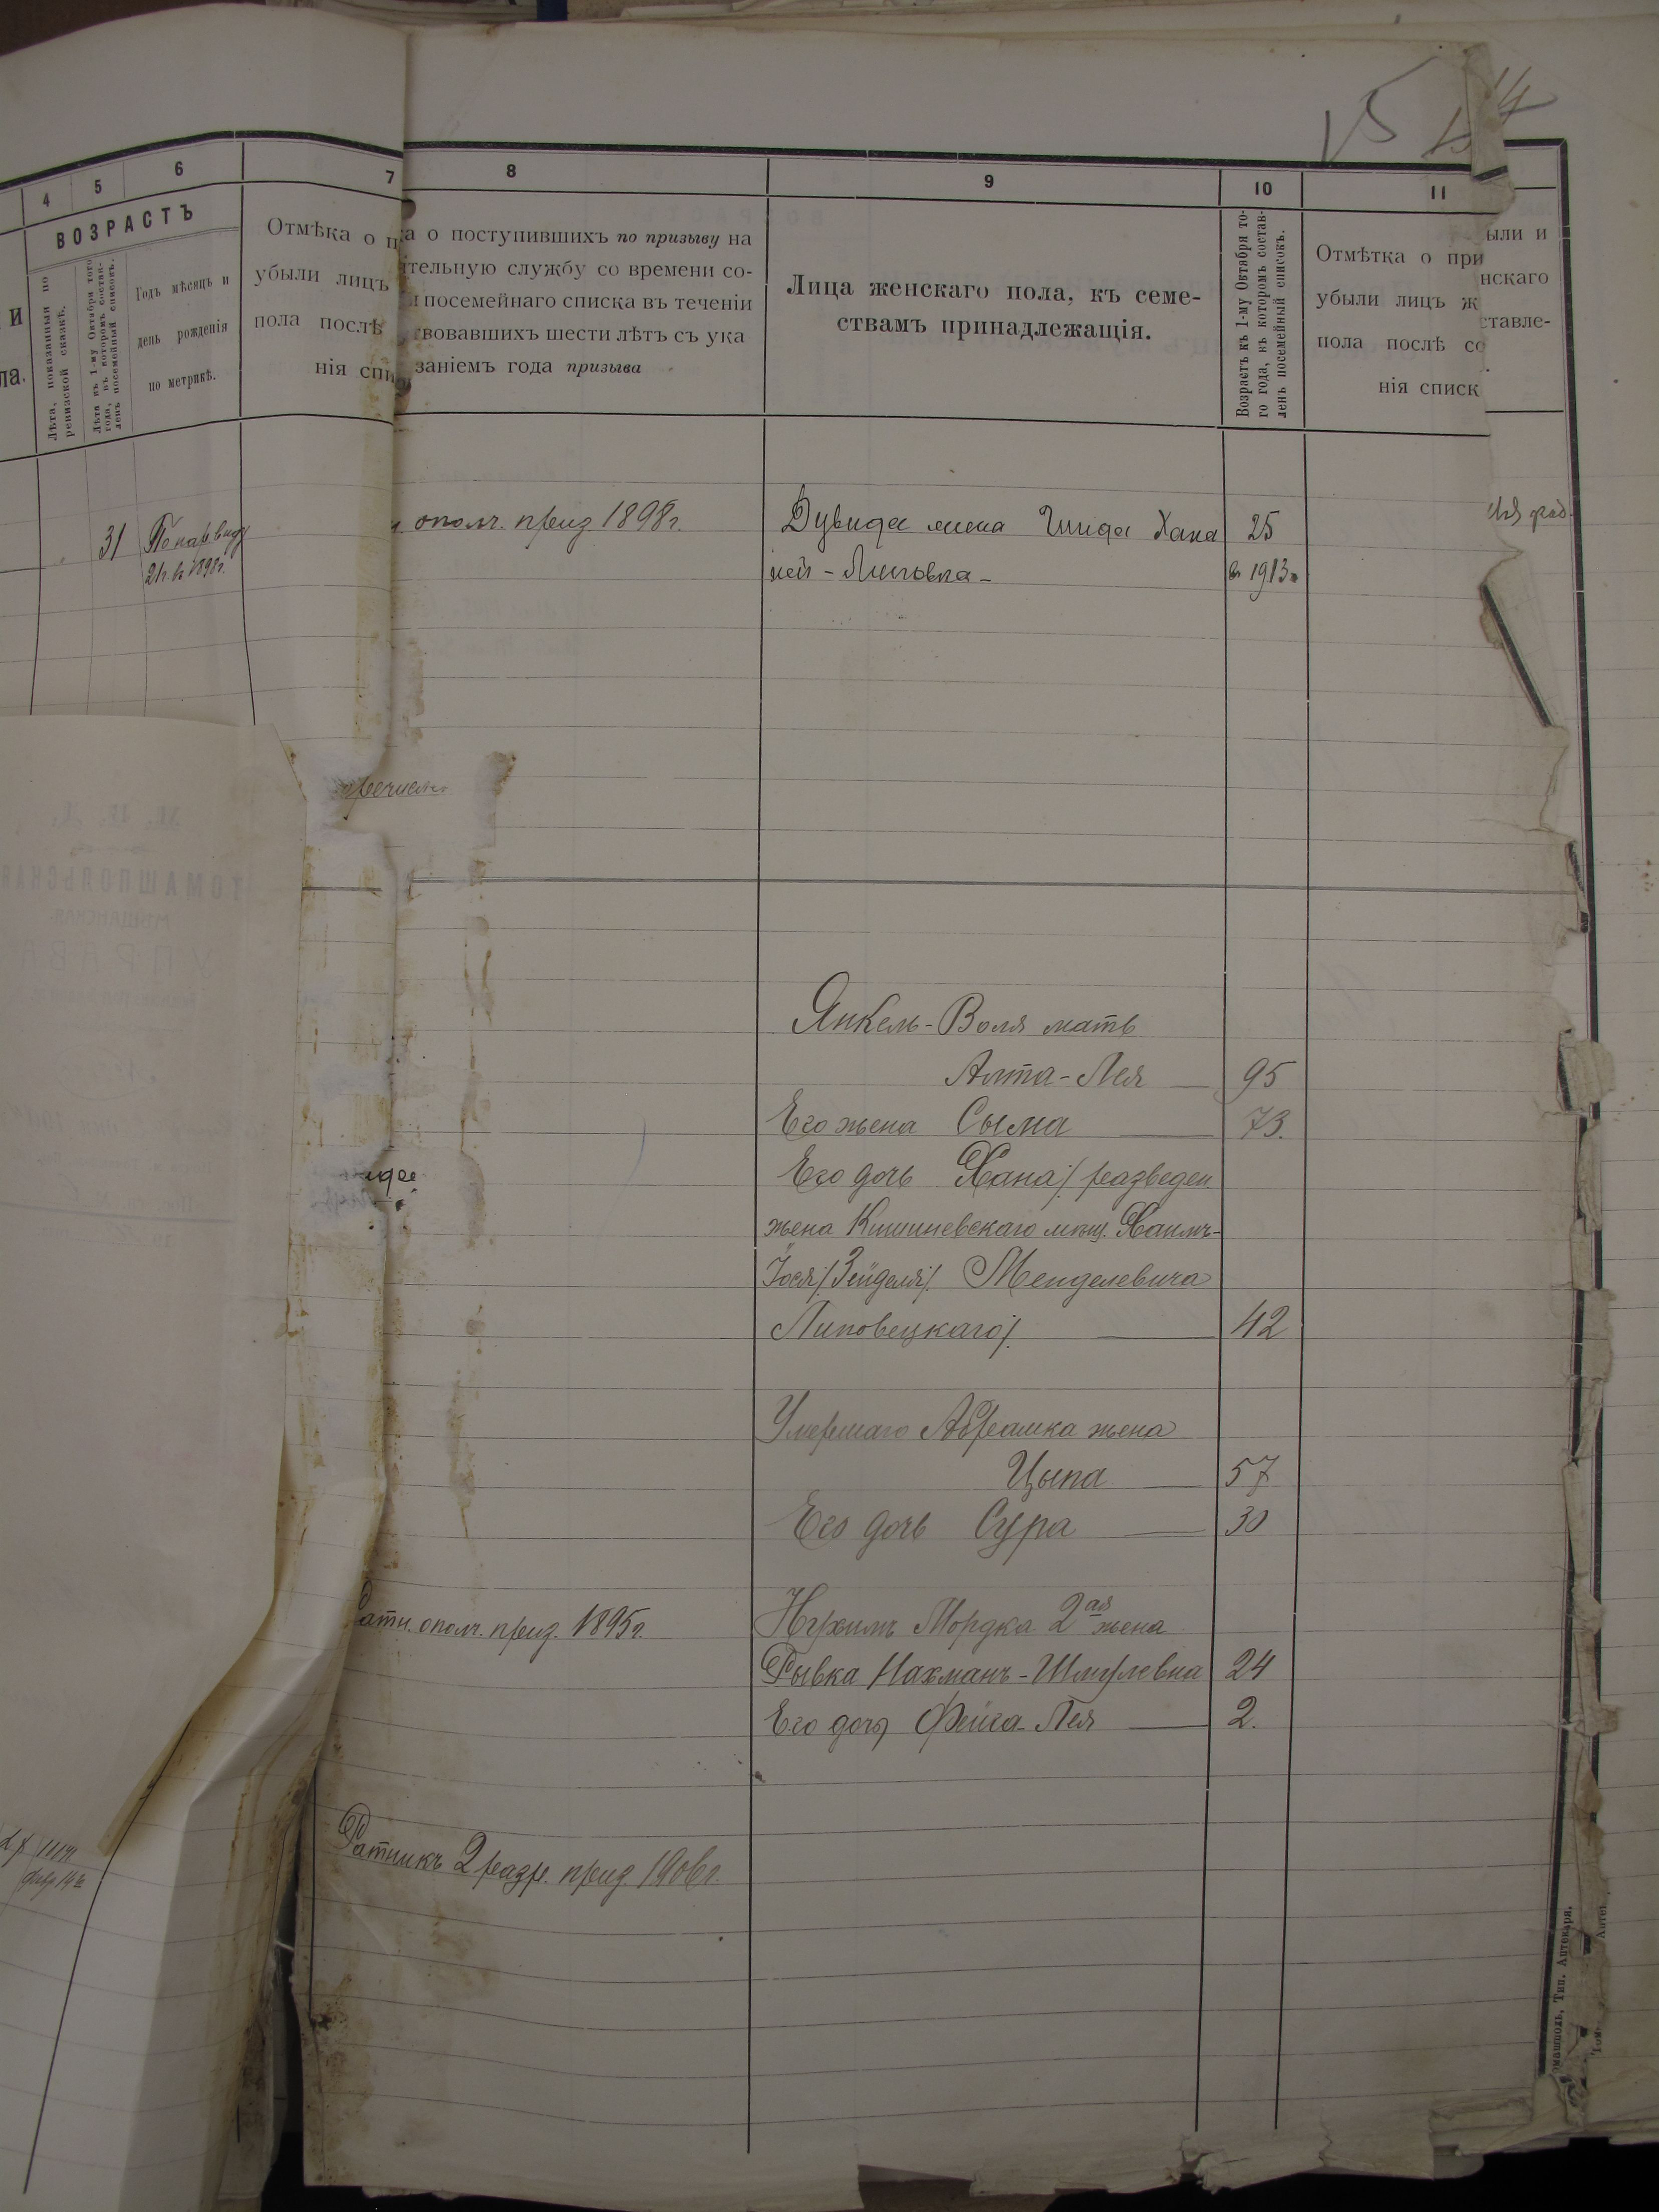 15
14
4
5
6
7
8
9
10
11
ВОЗРАСТЪ
Лѣта, показанныя по
ревизской сказкѣ.
Лѣта къ 1-му Октября того
года, въ которомъ состав-
ленъ посемейный списокъ.
Годъ мѣсяцъ и
день рожденія
по метрикѣ.
Отмѣка о п
убыли лицъ
пола послѣ
нія спи
а о поступившихъ по призыву на
ительную службу со времени со-
я посемейнаго списка въ теченіи
твовавшихъ шести лѣтъ съ ука
заніемъ года призыва
Лица женскаго пола, къ семе-
ствамъ принадлежащія.
Возрастъ къ 1-му Октября то-
го года, въ которомъ состав-
ленъ посемейный списокъ.
Отмѣтка о при
убыли лицъ ж
пола послѣ со
нія списк
ыли и
нскаго
ставле-
31 По нар виду
21 л. в 1898 г.
ополч. приз 1898 г.
Дувида жена Хана 25
в 1913
М. В. Д.
ТОМАШПОЛЬСКАЯ
МѢЩАНСКАЯ
УПРАВА
Янкель-Воля мать
Алта-Лея — 95
Его жена Сыма — 73.
Его дочь Хана /развед
жена Кишиневскаго мѣщ. Хаимъ-
Іося /Зейделя/ Менделевича
Липовецкаго/. — 42
Умершаго Абрамка жена
Цыпа — 57
Его дочь Сура — 30
Ратн. ополч. приз. 1895 г.
Нухимъ Мордка 2ая жена
Рывка Нахманъ-Шмулевна 24
Его дочь Фейга Лея — 2.
Ратникъ 2 разр. приз. 1906 г.
Тип. Аптекаря.